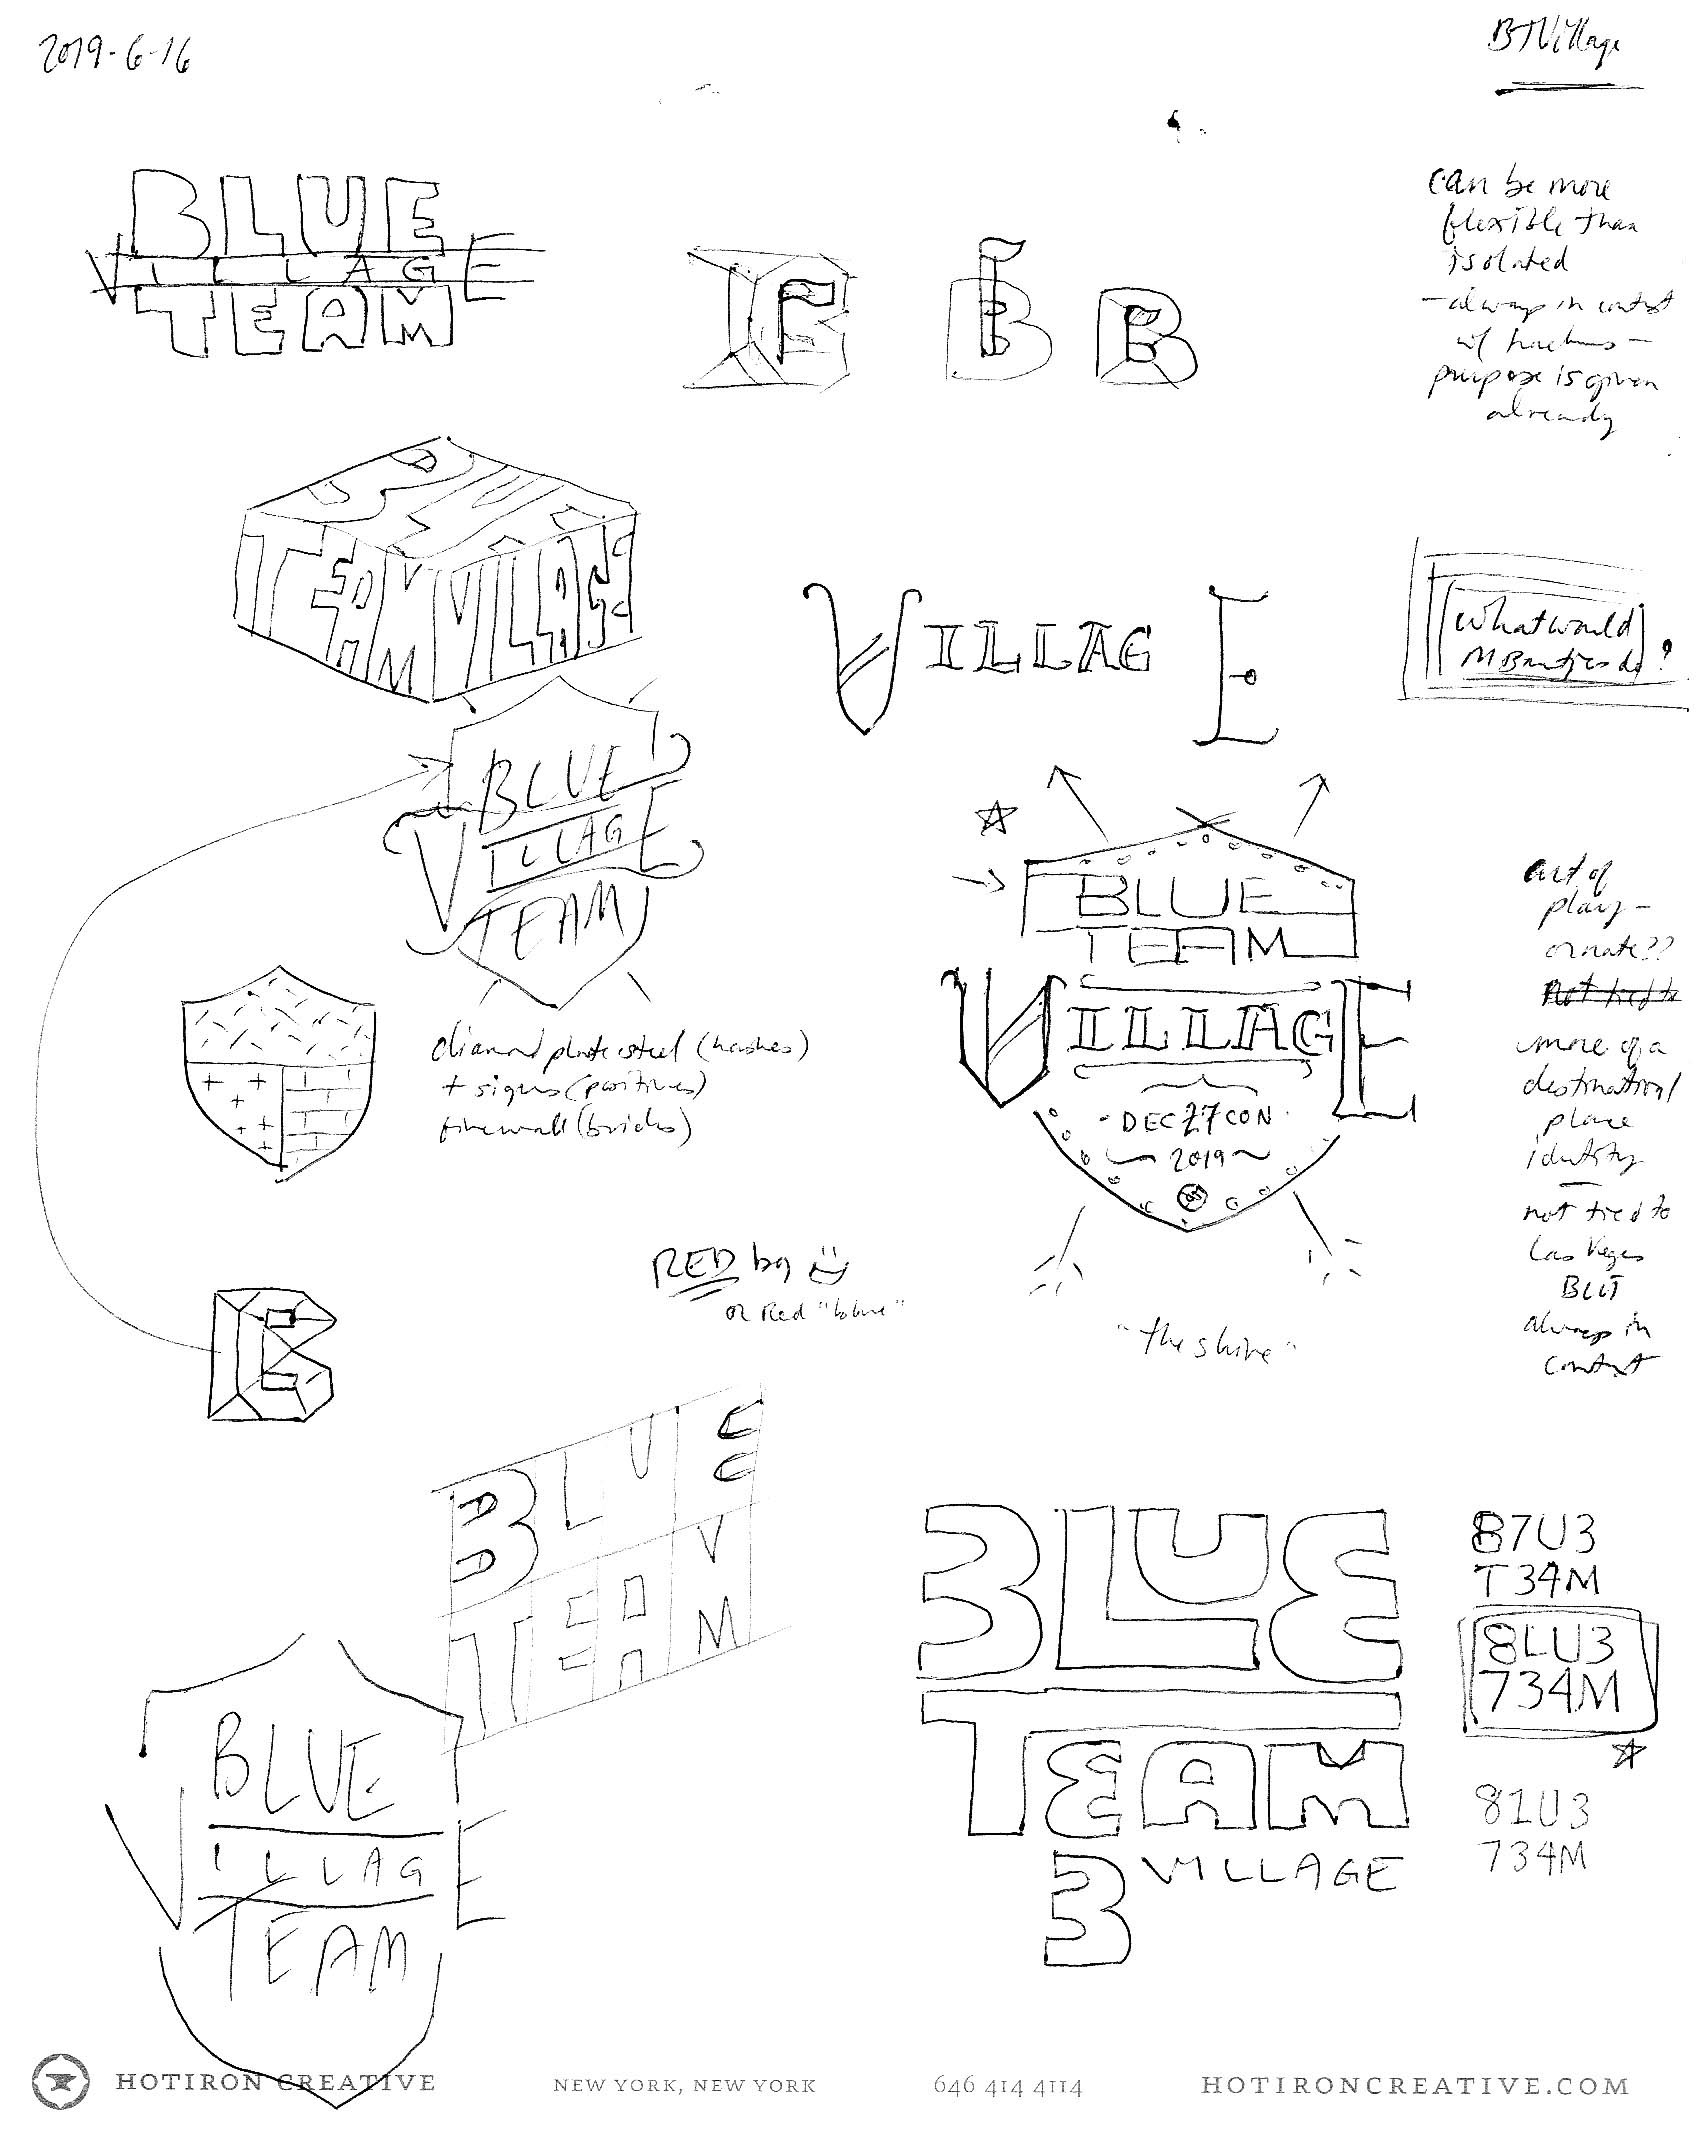 2019-6-16
BTVillage
BLUE
VILLAGE
TEAM
B
B
B
can be more
flexible than
isolated
- always in context
w/
purpose is given
already
BLUE
TEAM VILLAGE
VILLAGE
what would
do?
BLUE
VILLAGE
TEAM
BLUE
TEAM
VILLAGE
· DEC27CON ·
~ 2019 ~
art of
place -
ornate??
not tied to
more of a
destination/
place
identity
-
not tied to
Las Vegas
BUT
always in
context
diamond plate steel (hashes)
+ signs (positives)
firewall (bricks)
RED bg
or Red "blue"
"the shine"
B
BLUE
TEAM
BLUE
TEAM
3 VILLAGE
B7U3
T34M
8LU3
734M
81U3
734M
BLUE
VILLAGE
TEAM
HOTIRON CREATIVE
NEW YORK, NEW YORK
646 414 4114
HOTIRONCREATIVE.COM